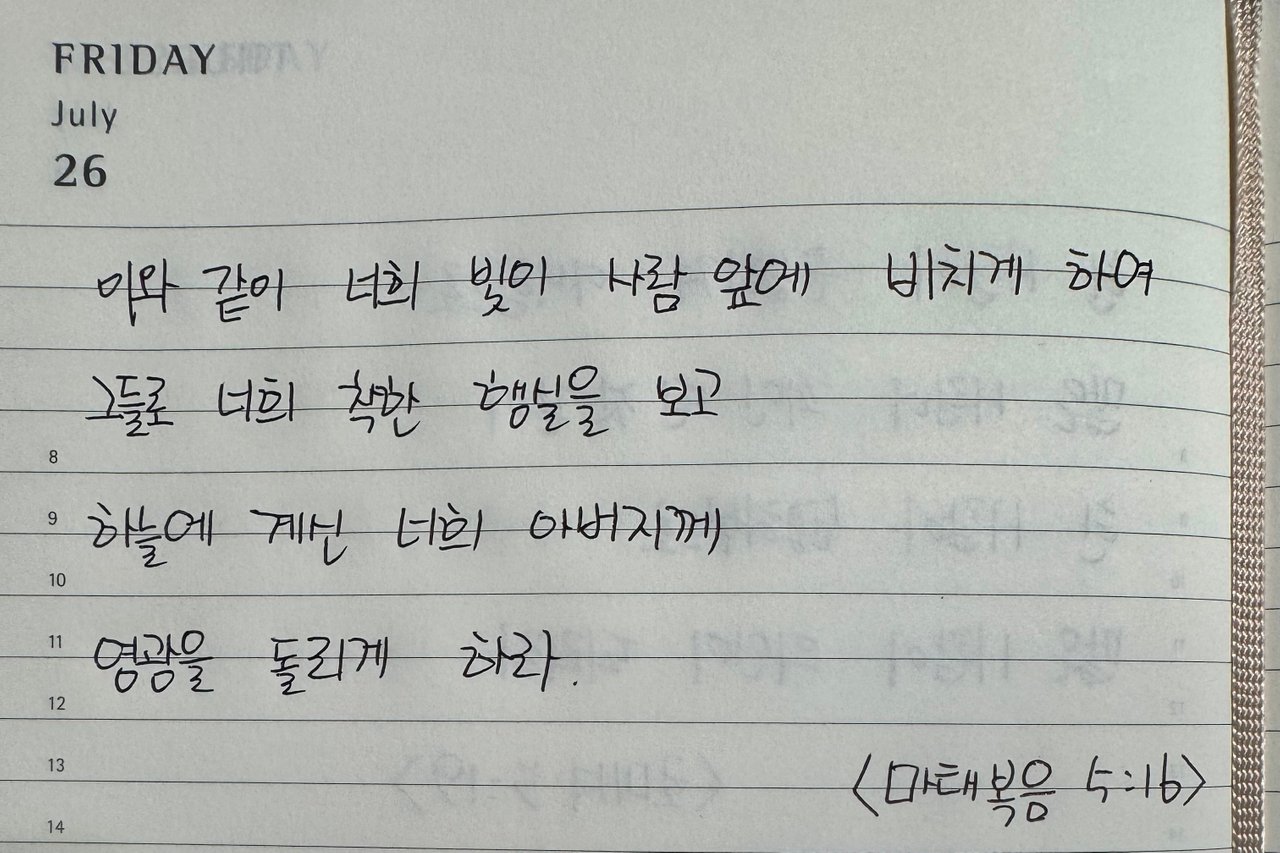 FRIDAY
July
26
이와 같이 너희 빛이 사람 앞에 비치게 하여
그들로 너희 착한 행실을 보고
8
9 하늘에 계신 너희 아버지께
10
11 영광을 돌리게 하라.
12
13 <마태복음 5:16>
14